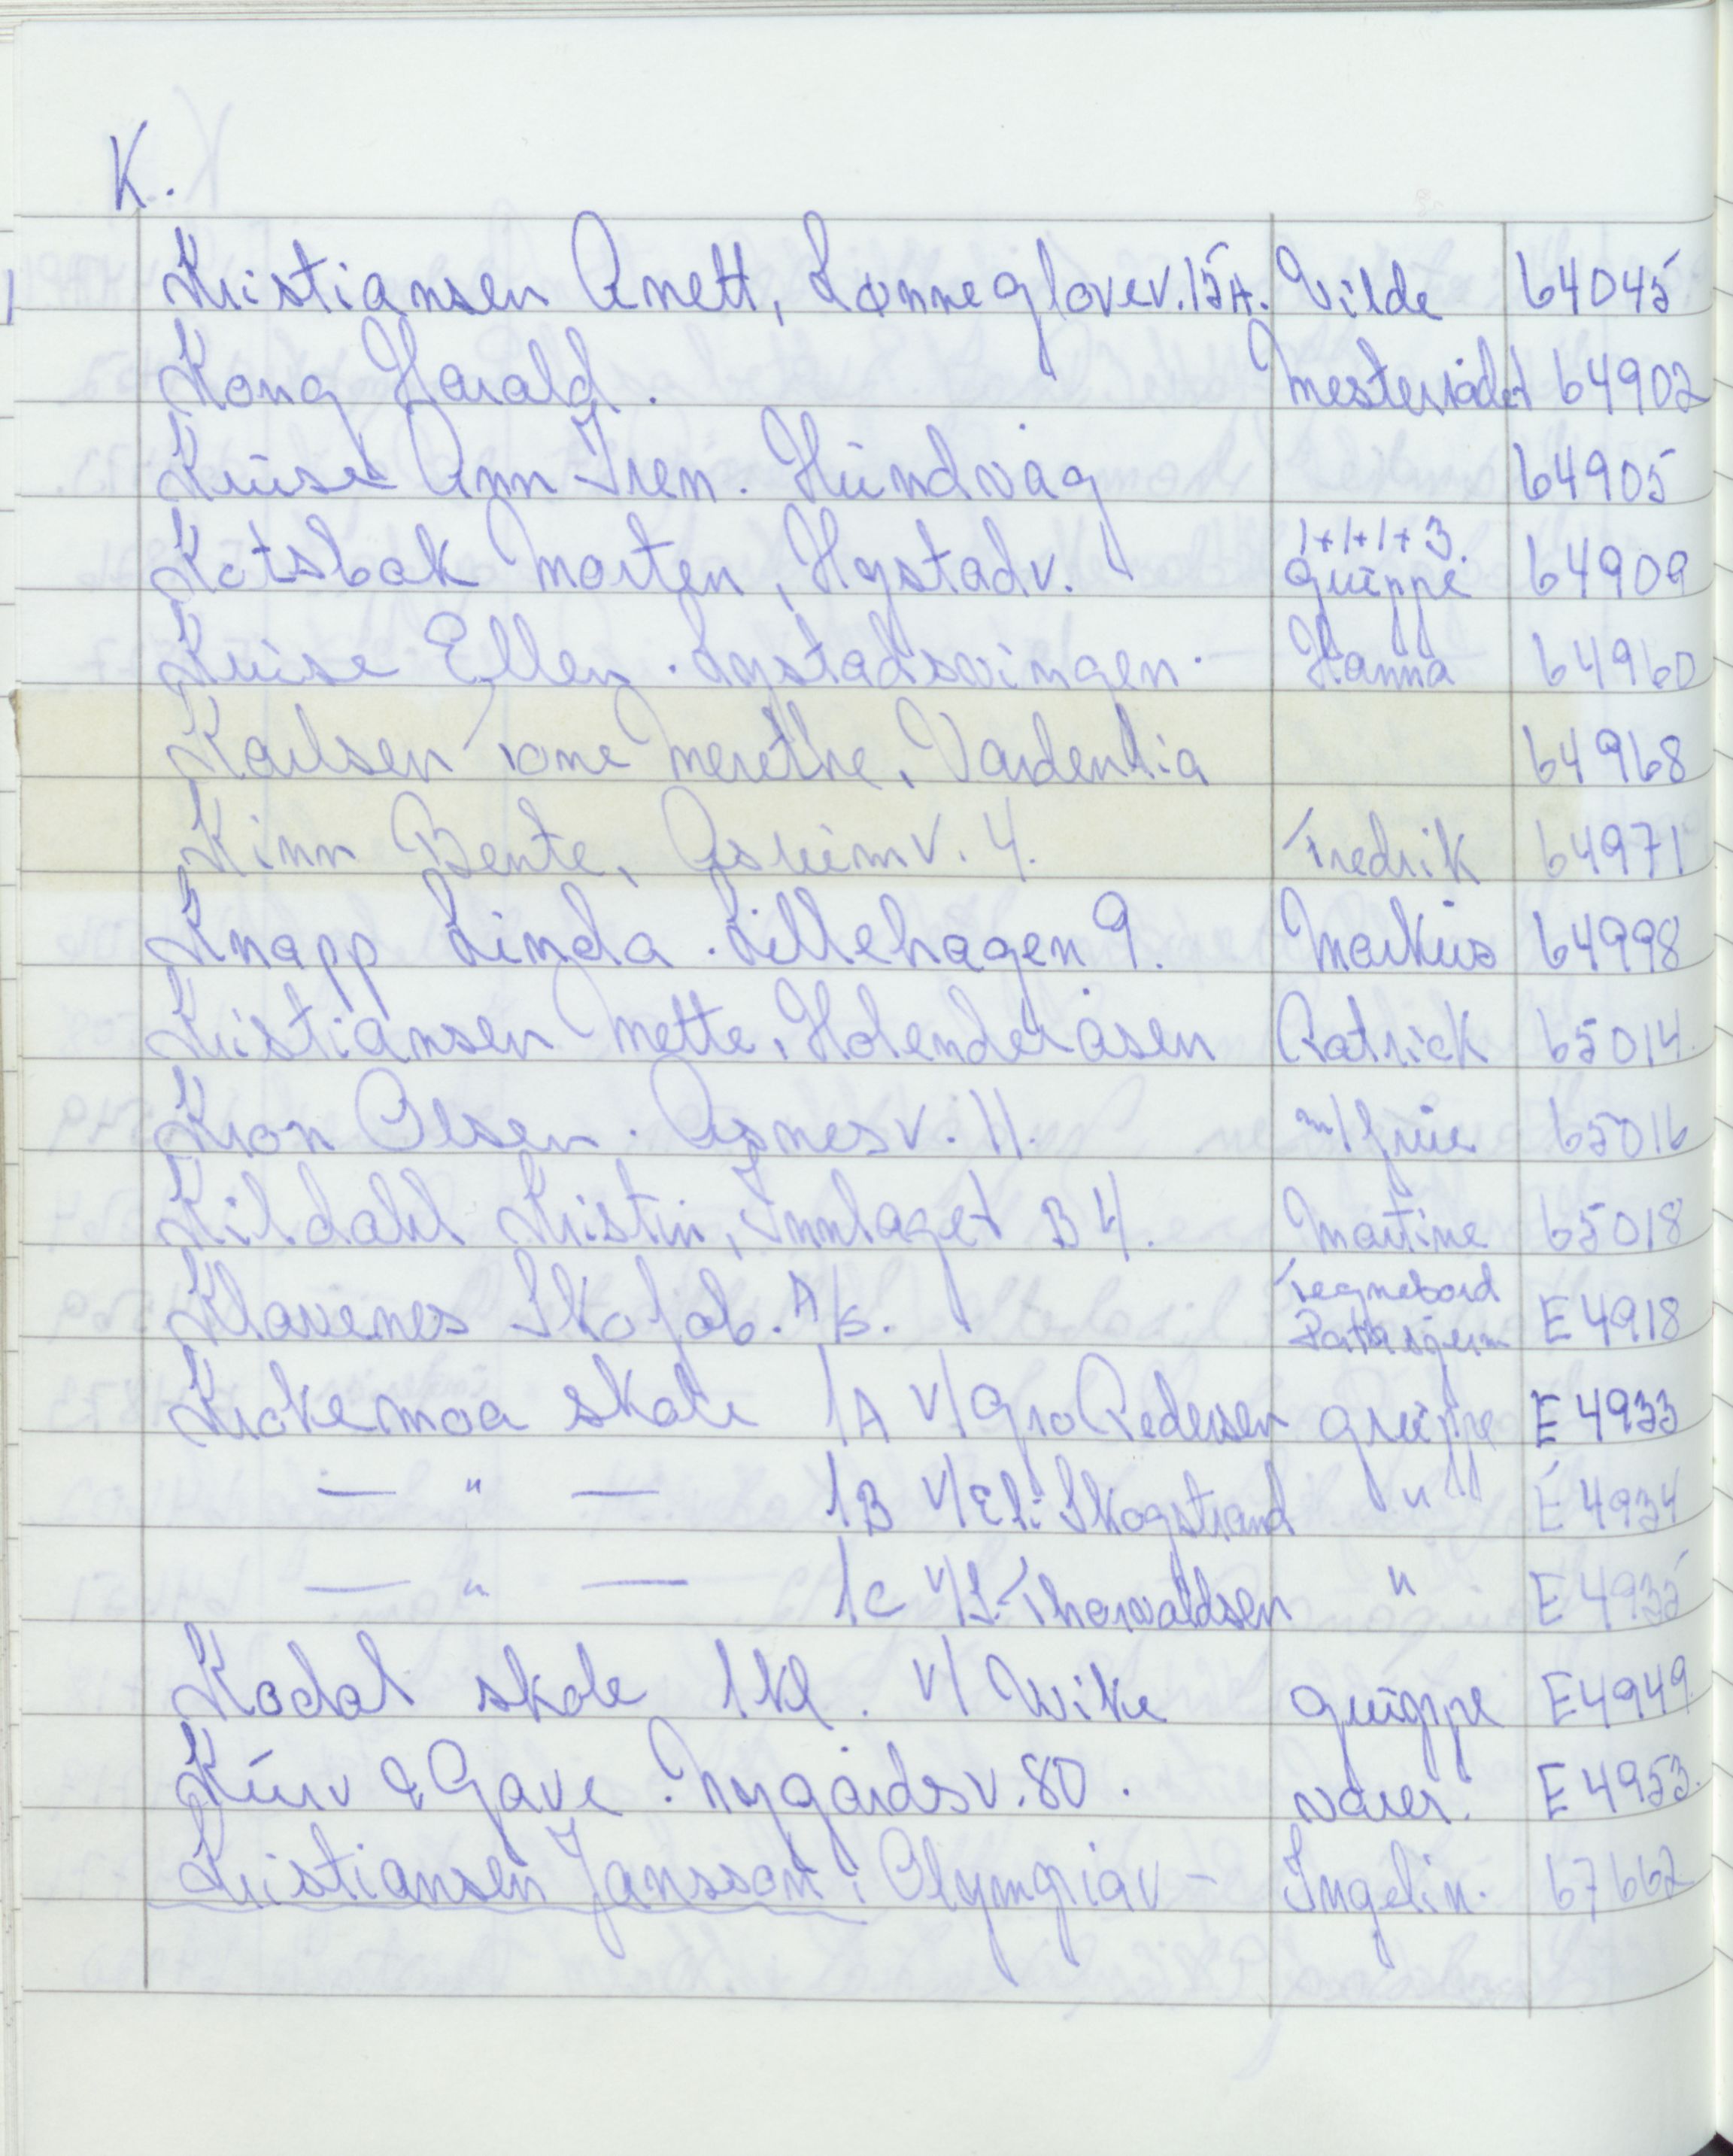 K.
Kristiansen Anett, Lønngloverv. 15A. Vilde 64045
Kong Harald. Mesterrådet 64902
Kruse Ann Iren. Hundvåg 64905
1+1+1+3.
Kotsbak Morten, Hystadv. gruppe 64909
Kruse Ellen. Lystadsvingen. Hanna 64960
Karlsen Tone Merethe, Vardenlia 64968
Kinn Bente, Åsrumv. 4. Fredrik 64971
Knapp Linda. Lillehagen 9. Markus 64998
Kristiansen Mette, Holenderåsen Patrick 65014
Kron Olsen. Agnesv. 11. m/frue 65016
Kildahl Kristin, Innlaget B4. Martine 65018
Tegnebord
Klavenes Skofab. A/S. E 4918
Krokemoa skole 1A v/Gro Pedersen gruppe E 4933
— " — 1B v/Eli Skogstrand " E 4934
— " — 1C v/I. Thorvaldsen " E 4935
Kodal skole 1 kl. v/ Wike gruppe E 4949
Kurv & Gave. Nygårdsv. 80. varer. E 4953.
Kristiansen Jansson, Olympiav - Ingelin. 67662